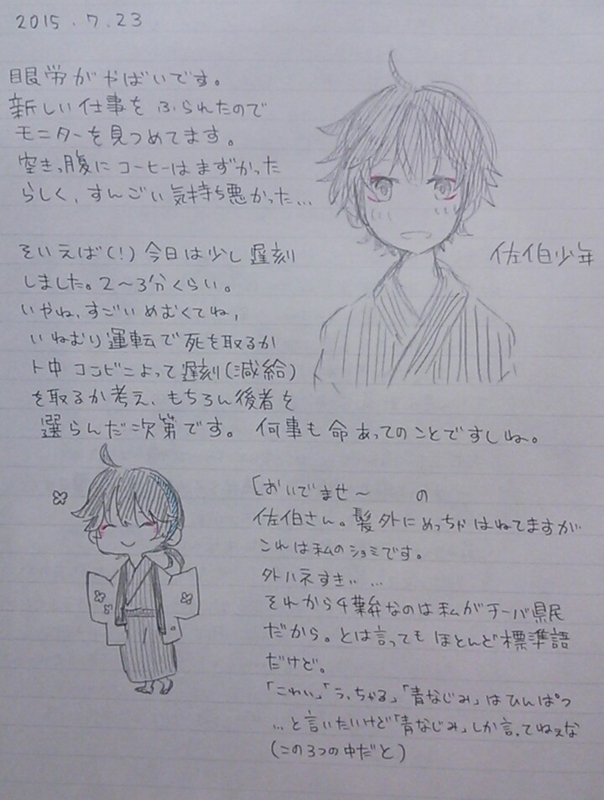 2015.7.23
眼労がやばいです。
新しい仕事をふられたので
モニターを見つめてます。
空きっ腹にコーヒーはまずかった
らしく、すんごい気持ち悪かった…
佐伯少年
そいえば(!)今日は少し遅刻
しました。2〜3分くらい。
いやね、すごいめむくてね、
いねむり運転で死を取るか
ト中コンビニよって遅刻(減給)
を取るか考え、もちろん後者を
選らんだ次第です。何事も命あってのことですしね。
「おいでませ〜 の
佐伯さん。髪外にめっちゃはねてますが
これは私のショミです。
外ハネすきぃ…
それから千葉弁なのは私がチーバ県民
だから。とは言ってもほとんど標準語
だけど。
「こわい」「うっちゃる」「青なじみ」はひんぱつ
…と言いたいけど「青なじみ」しか言ってねぇな
(この3つの中だと)